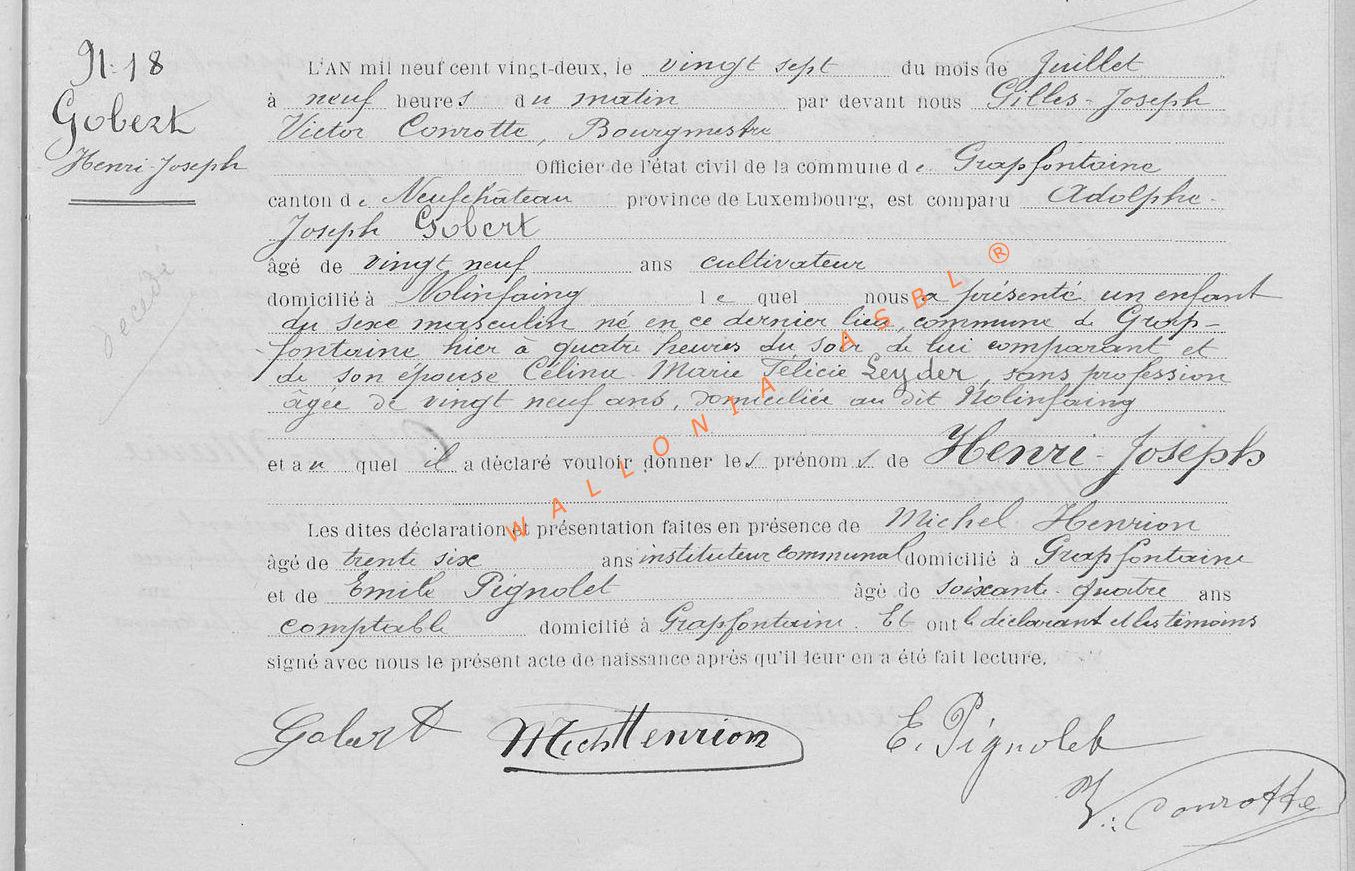 N: 18
Gobert
Henri-Joseph
décédé
L'AN mil neuf cent vingt-deux, le vingt sept du mois de Juillet
à neuf heures du matin par devant nous Gilles-Joseph
Victor Conrotte, Bourgmestre
Officier de l'état civil de la commune de Grapfontaine
canton de Neufchâteau province de Luxembourg, est comparu Adolphe-
Joseph Gobert
âgé de vingt neuf ans cultivateur
domicilié à Nolinfaing lequel nous a présenté un enfant
du sexe masculin né en ce dernier lieu, commune de Grap-
fontaine hier à quatre heures du soir de lui comparant et
de son épouse Célina Marie Félicie Leyder, sans profession
âgée de vingt neuf ans, domiciliée au dit Nolinfaing
et auquel il a déclaré vouloir donner les prénoms de Henri-Joseph
Les dites déclaration et présentation faites en présence de Michel Henrion
âgé de trente six ans instituteur communal domicilié à Grapfontaine
et de Emile Pignolet âgé de soixante-quatre ans
comptable domicilié à Grapfontaine. Et ont le déclarant et les témoins
signé avec nous le présent acte de naissance après qu'il leur en a été fait lecture.
Gobert MichHenrion E. Pignolet
V. Conrotte
WALLONIA ASBL ®